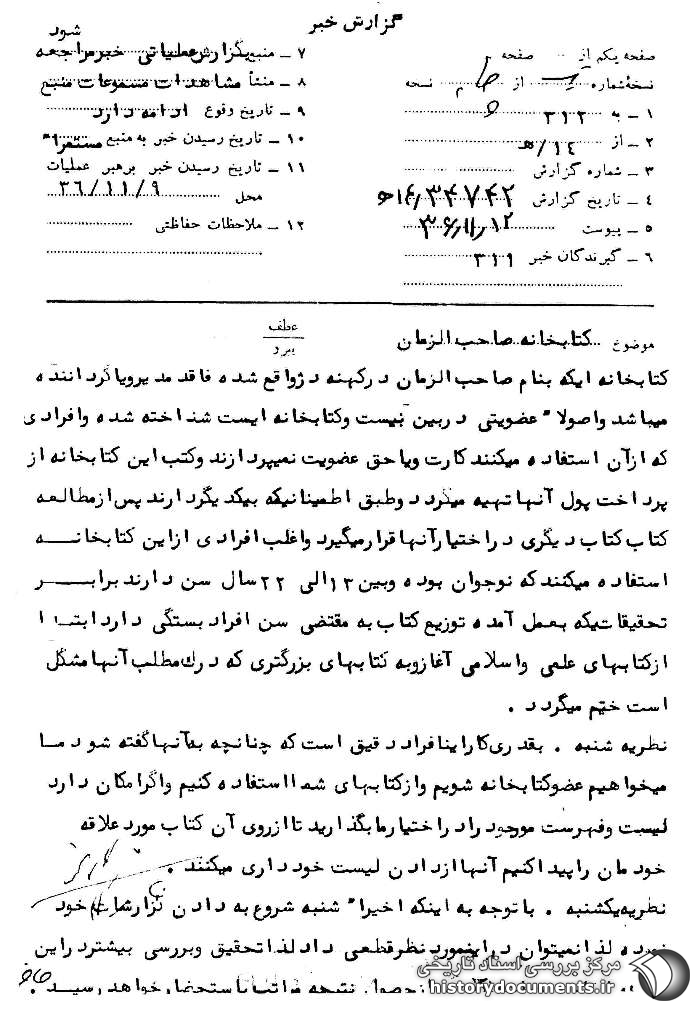 گزارش خبر
شود
صفحه یکم از صفحه
نسخهٔ شماره از نسخه
۱ ـ به ۳۱۲
۲ ـ از ۱۴/هـ
۳ ـ شماره گزارش
۴ ـ تاریخ گزارش
۵ ـ پیوست
۶ ـ گیرندگان خبر ۳۱۹
۷ ـ منبع بگزارش عملیاتی خبر مراجعه
۸ ـ منشأ مشاهدات مسموعات منبع
۹ ـ تاریخ وقوع ادامه دارد
۱۰ ـ تاریخ رسیدن خبر به منبع مستمراً
۱۱ ـ تاریخ رسیدن خبر برهبر عملیات
محل ۳۶/۱۱/۹
۱۲ ـ ملاحظات حفاظتی
موضوع کتابخانه صاحب الزمان
عطف
پیرو
کتابخانه ایکه بنام صاحب الزمان در کهنه دژ واقع شده فاقد مدیر ویا گرداننده
میباشد واصولا" عضویتی دربین نیست وکتابخانه ایست شناخته شده وافرادی
که از آن استفاده میکنند کارت ویاحق عضویت نمیپردازند وکتب این کتابخانه از
پرداخت پول آنها تهیه میگردد وطبق اطمینانیکه بیکدیگر دارند پس از مطالعه
کتاب کتاب دیگری در اختیار آنها قرار میگیرد واغلب افرادی از این کتابخانـــه
استفاده میکنند که نوجوان بوده وبین ۱۳ الی ۲۲ سال سن دارند برابـــر
تحقیقاتیکه بعمل آمده توزیع کتاب به مقتضی سن افراد بستگی دارد ابتدا
ازکتابهای علمی واسلامی آغاز وبه کتابهای بزرگتری که درك مطلب آنها مشکل
است ختم میگردد .
نظریه شنبه . بقدری کار اینافراد دقیق است که چنانچه به آنها گفته شود ما
میخواهیم عضو کتابخانه شویم وازکتابهای شما استفاده کنیم واگر امکان دارد
لیست وفهرست موجود را در اختیار ما بگذارید تا از روی آن کتاب مورد علاقه
خودمان را پیدا کنیم آنها از دادن لیست خودداری میکنند .
نظریه یکشنبه . با توجه به اینکه اخیرا" شنبه شروع به دادن گزارشات خود
نموده لذا نمیتوان در اینمورد نظر قطعی داد لذا تحقیق وبررسی بیشتر در این
حصول نتیجه مراتب باستحضار خواهد رسید .
مرکز بررسی اسناد تاریخی
historydocuments.ir